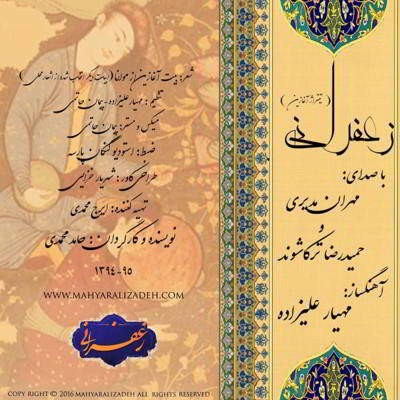 ( تیتراژ آغازین )
زعفرانی
با صدای:
مهران مدیری
و
حمیدرضا ترکاشوند
آهنگساز:
مهیار علیزاده
شعر: بیت آغازین از مولانا (ابیات دیگر انتخاب شده از اشعار محلی)
تنظیم : مهیار علیزاده-پیمان حاتمی
میکس و مستر: پیمان حاتمی
ضبط: استودیو کنگان پارسه
طراحی کاور : شهریار خزاعی
تهیه کننده: ایرج محمدی
نویسنده و کارگردان: حامد محمدی
۱۳۹۴-۹۵
WWW.MAHYARALIZADEH.COM
زعفرانی
COPY RIGHT © 2016 MAHYARALIZADEH ALL RIGHTS RESERVED